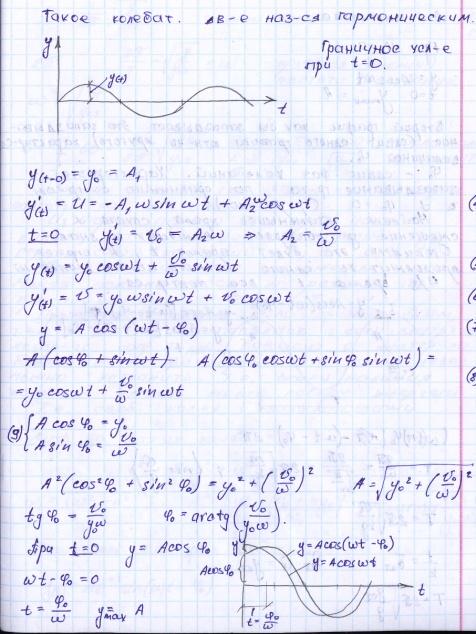 Такое колебат. дв-е наз-ся гармоническим.
Граничное усл-е
при t=0.
y
y(t)
t
y(t=0) = y₀ = A₁
y'(t) = U = -A₁ω sin ωt + A₂ω cos ωt
t=0 y'(t) = v₀ = A₂ω ⇒ A₂ = v₀/ω
y(t) = y₀ cos ωt + v₀/ω sin ωt
y'(t) = v = y₀ω sin ωt + v₀ cos ωt
y = A cos (ωt - φ₀)
A(cos φ₀ + sin ωt) A(cos φ₀ cos ωt + sin φ₀ sin ωt) =
= y₀ cos ωt + v₀/ω sin ωt
(9) { A cos φ₀ = y₀
A sin φ₀ = v₀/ω
A²(cos² φ₀ + sin² φ₀) = y₀² + (v₀/ω)² A = √(y₀² + (v₀/ω)²)
tg φ₀ = v₀/(y₀ω) φ₀ = arctg (v₀/(y₀ω)).
При t=0 y = A cos φ₀
ωt - φ₀ = 0
t = φ₀/ω y max = A
y
y = A cos(ωt - φ₀)
y = A cos ωt
A cos φ₀
t
t = φ₀/ω